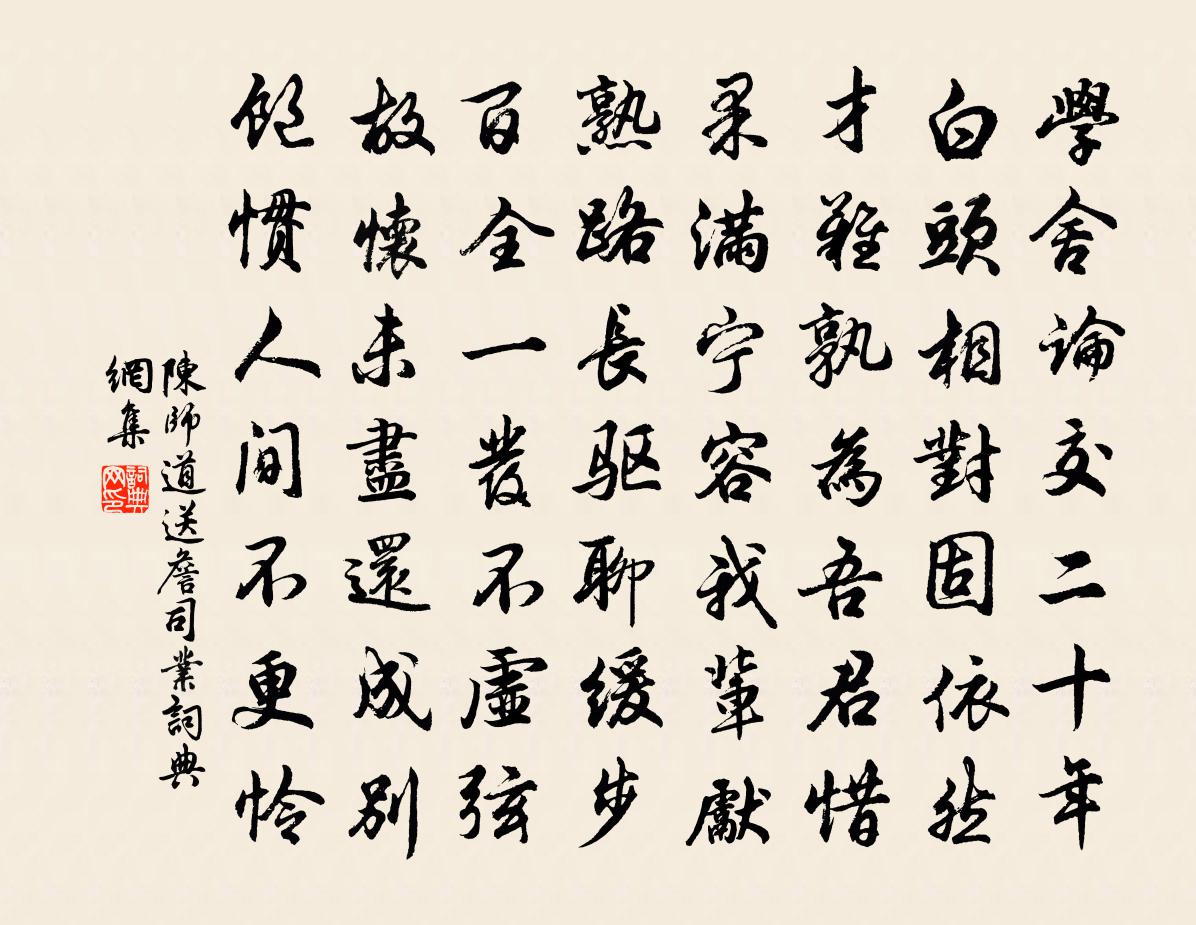 學舍論交二十年
白頭相對固依然
才難孰為吾君惜
滿宁容我輩獻
熟路長驱聊緩步
百全一發不虛弦
故懷未盡還成別
飽慣人間不更怜
陳師道送詹司業詞典
網集
詞典网印